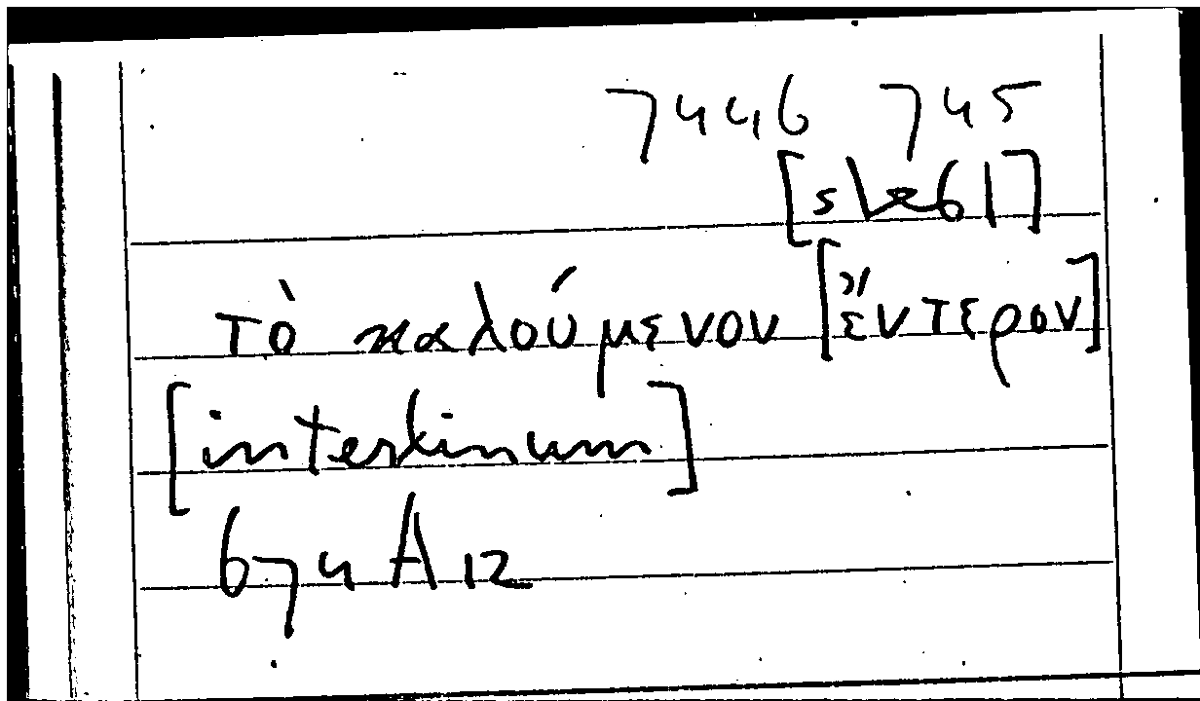 7446 745
τὸ καλούμενον [ἔντερον]
[intestinum]
674 A 12